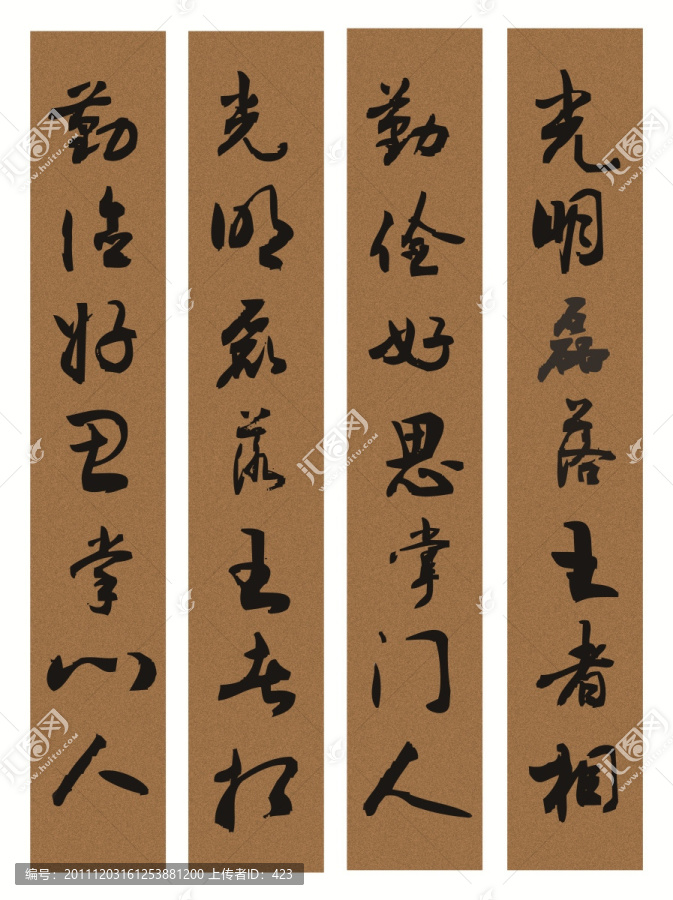 光明磊落王者相
勤俭好思掌门人
光明磊落王者相
勤俭好思掌门人
编号：20111203161253881200 上传者ID：423
汇图网
www.huitu.com